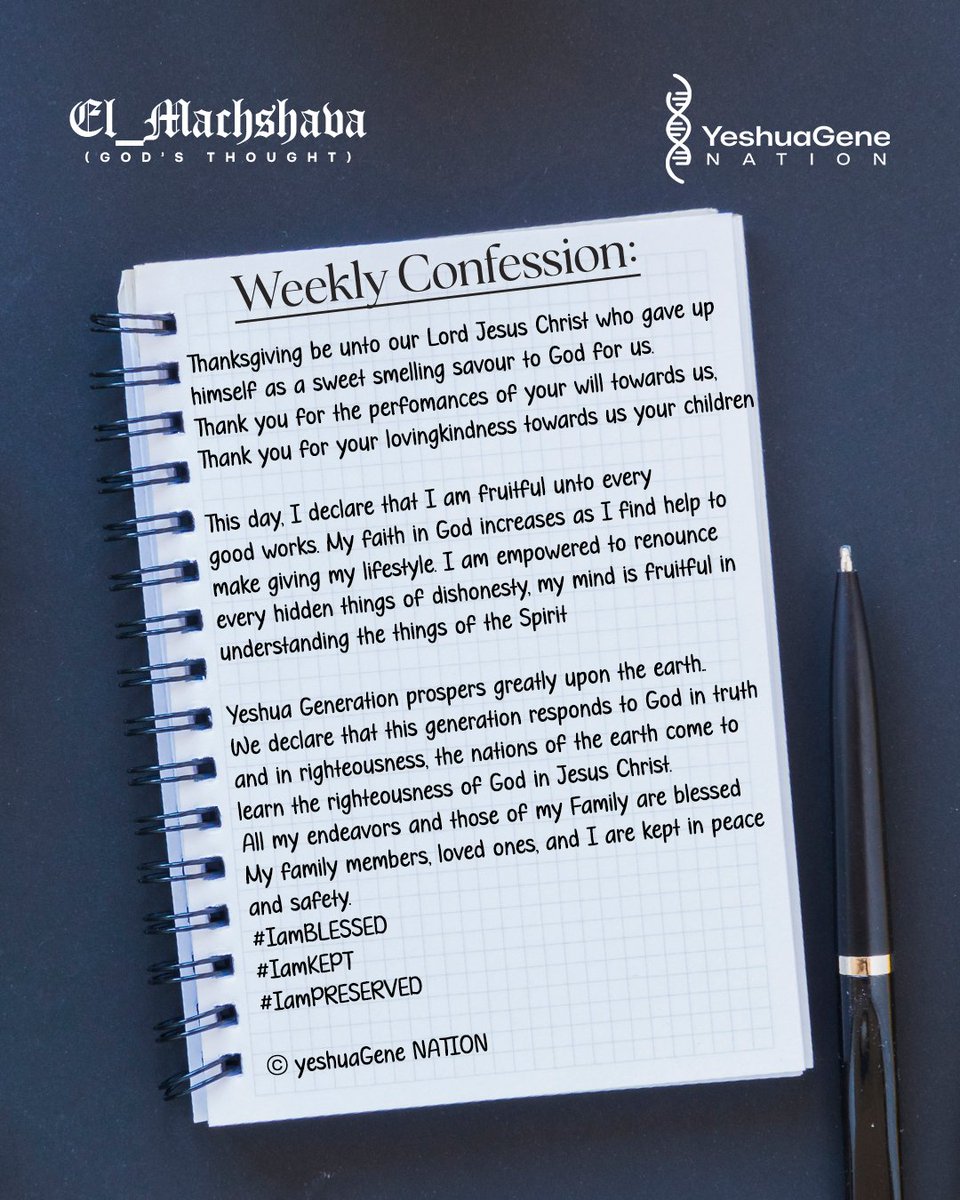 El_Machshava
(GOD'S THOUGHT)
YeshuaGene
NATION
Weekly Confession:
Thanksgiving be unto our Lord Jesus Christ who gave up
himself as a sweet smelling savour to God for us.
Thank you for the perfomances of your will towards us,
Thank you for your lovingkindness towards us your children
This day, I declare that I am fruitful unto every
good works. My faith in God increases as I find help to
make giving my lifestyle. I am empowered to renounce
every hidden things of dishonesty, my mind is fruitful in
understanding the things of the Spirit
Yeshua Generation prospers greatly upon the earth..
We declare that this generation responds to God in truth
and in righteousness, the nations of the earth come to
learn the righteousness of God in Jesus Christ.
All my endeavors and those of my Family are blessed
My family members, loved ones, and I are kept in peace
and safety.
#IamBLESSED
#IamKEPT
#IamPRESERVED
© yeshuaGene NATION